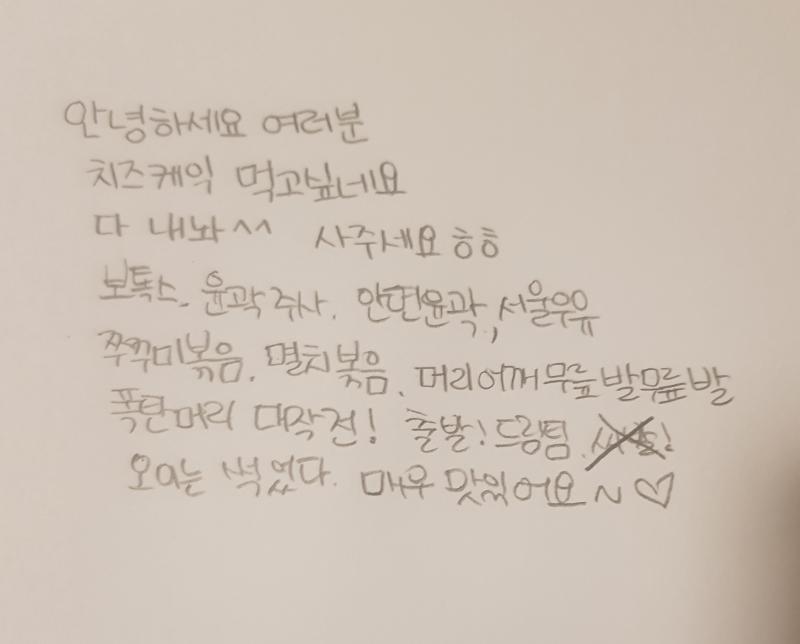 안녕하세요 여러분
치즈케익 먹고싶네요
다 내놔^^ 사주세요 ㅎㅎ
보톡스. 윤곽주사. 안면윤곽, 서울우유
쭈꾸미볶음. 멸치볶음. 머리어깨무릎발무릎발
폭탄머리 대작전! 출발!드림팀.
오이는 썩었다. 매우 맛있어요~♡